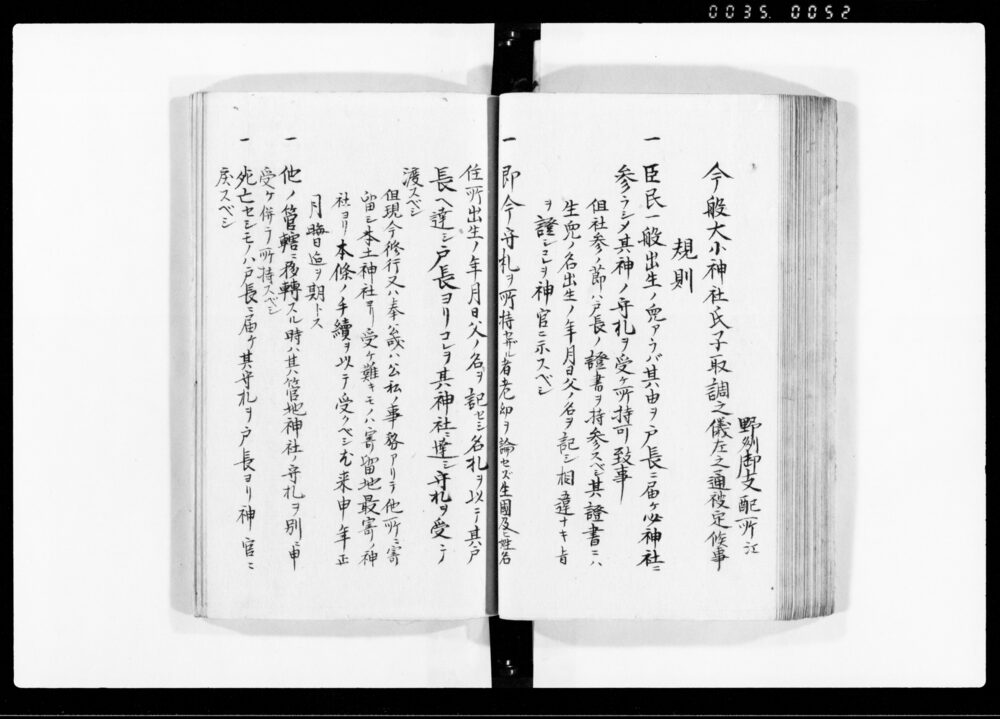 0035. 0052
野州御支配所江
今般大小神社氏子取調之儀左之通被定候事
規則
一 臣民一般出生ノ児アラバ其由ヲ戸長ニ届ケ必神社ニ
参ラシメ其神ノ守札ヲ受ケ所持可致事
但社参ノ節ハ戸長ノ證書ヲ持参スベシ其證書ニハ
生児ノ名出生ノ年月日父ノ名ヲ記シ相違ナキ旨
ヲ證シコレヲ神官ニ示スベシ
一 即今守札ヲ所持セザル者老幼ヲ論セズ生國及ヒ姓名
住所出生ノ年月日父ノ名ヲ記セシ名札ヲ以テ其戸
長ヘ達シ戸長ヨリコレヲ其神社ニ達シ守札ヲ受テ
渡スベシ
但現今修行又ハ奉公或ハ公私ノ事務アリテ他所ニ寄
留シ本土神社ヨリ受ケ難キモノハ寄留地最寄ノ神
社ヨリ本條ノ手續ヲ以テ受クベシ尤来申年正
月晦日迄ヲ期トス
一 他ノ管轄ニ移轉スル時ハ其管地神社ノ守札ヲ別ニ申
受ケ併テ所持スベシ
一 死亡セシモノハ戸長ニ届ケ其守札ヲ戸長ヨリ神官ニ
戻スベシ